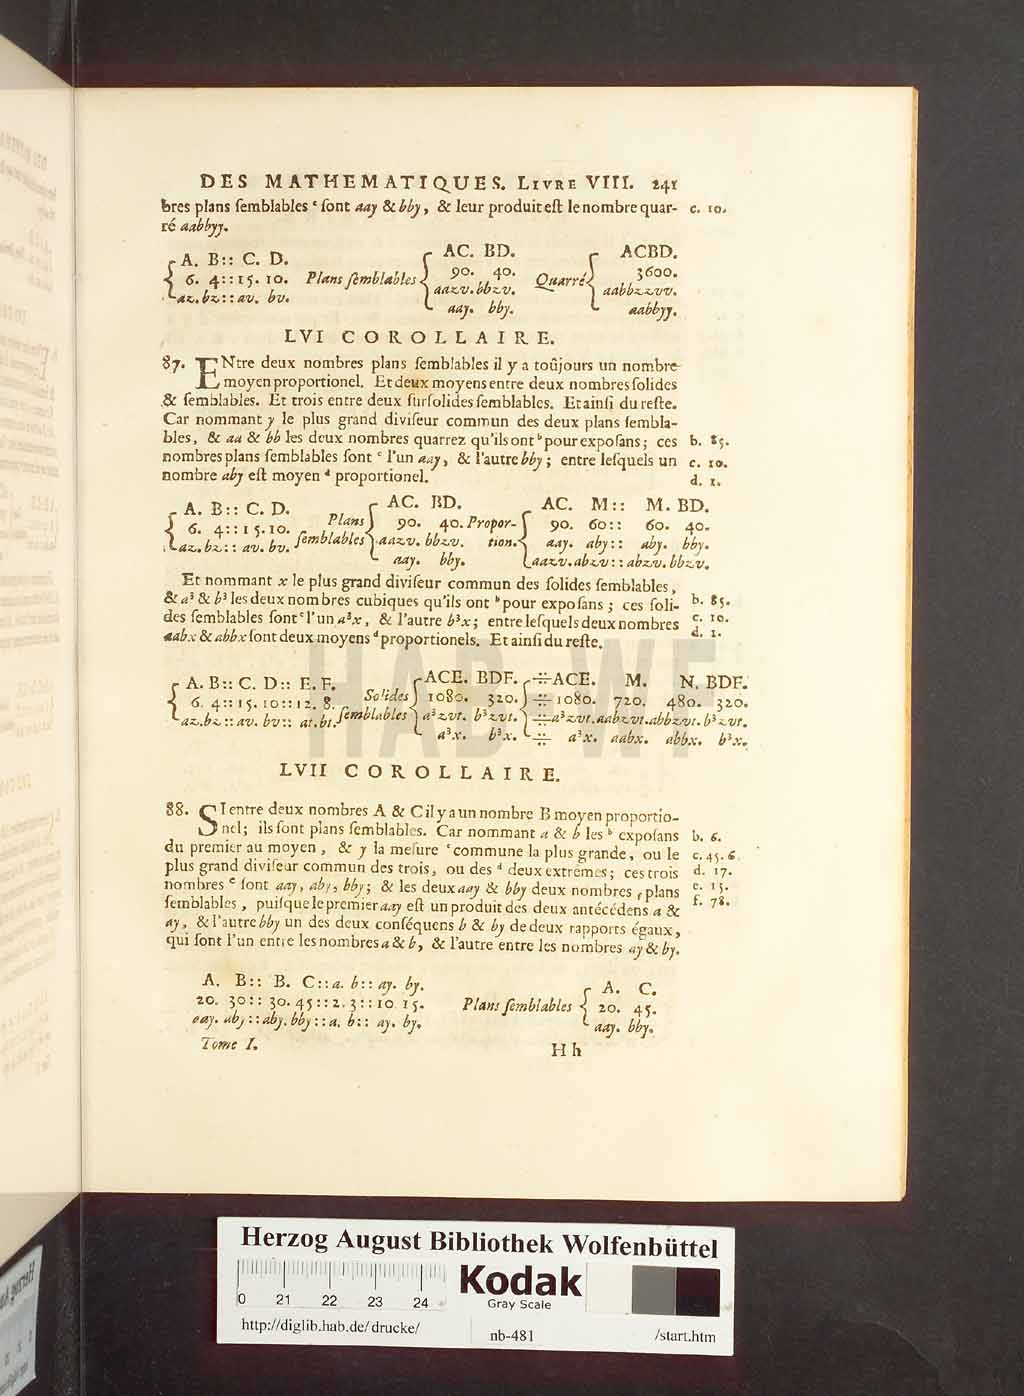 DES MATHEMATIQUES. LIVRE VIII. 241
bres plans ſemblables ᶜ ſont aay & bby, & leur produit eſt le nombre quar- c. 10.
ré aabbyy.
A. B:: C. D. Plans ſemblables AC. BD. Quarré ACBD.
6. 4::15. 10. 90. 40. 3600.
az. bz:: av. bv. aazv. bbzv. aabbzzvv.
aay. bby. aabbyy.
LVI COROLLAIRE.
87. ENtre deux nombres plans ſemblables il y a toûjours un nombre
moyen proportionel. Et deux moyens entre deux nombres ſolides
& ſemblables. Et trois entre deux ſurſolides ſemblables. Et ainſi du reſte.
Car nommant y le plus grand diviſeur commun des deux plans ſembla-
bles, & aa & bb les deux nombres quarrez qu'ils ont ᵇ pour expoſans; ces b. 85.
nombres plans ſemblables ſont ᶜ l'un aay, & l'autre bby; entre leſquels un c. 10.
nombre aby eſt moyen ᵈ proportionel. d. 1.
A. B:: C. D. Plans ſemblables AC. BD. Propor-tion. AC. M:: M. BD.
6. 4::15. 10. 90. 40. 90. 60:: 60. 40.
az. bz:: av. bv. aazv. bbzv. aay. aby:: aby. bby.
aay. bby. aazv. abzv:: abzv. bbzv.
Et nommant x le plus grand diviſeur commun des ſolides ſemblables,
& a³ & b³ les deux nombres cubiques qu'ils ont ᵇ pour expoſans; ces ſoli- b. 85.
des ſemblables ſont ᶜ l'un a³x, & l'autre b³x; entre leſquels deux nombres c. 10.
aabx & abbx ſont deux moyens ᵈ proportionels. Et ainſi du reſte. d. 1.
A. B:: C. D:: E. F. Solides ſemblables ACE. BDF. ∺ ACE. M. N. BDF.
6. 4::15. 10::12. 8. 1080. 320. ∺ 1080. 720. 480. 320.
az. bz:: av. bv:: at. bt. a³zvt. b³zvt. ∺ a³zvt. aabzvt. abbzvt. b³zvt.
a³x. b³x. ∺ a³x. aabx. abbx. b³x.
HAB-WF
LVII COROLLAIRE.
88. SI entre deux nombres A & C il y a un nombre B moyen proportio-
nel; ils ſont plans ſemblables. Car nommant a & b les ᵇ expoſans b. 6.
du premier au moyen, & y la meſure ᶜ commune la plus grande, ou le c. 45. 6.
plus grand diviſeur commun des trois, ou des ᵈ deux extrêmes; ces trois d. 17.
nombres ᵉ ſont aay, aby, bby; & les deux aay & bby deux nombres ᶠ plans e. 15.
ſemblables, puiſque le premier aay eſt un produit des deux antécédens a & f. 78.
ay, & l'autre bby un des deux conſéquens b & by de deux rapports égaux,
qui ſont l'un entre les nombres a & b, & l'autre entre les nombres ay & by.
A. B:: B. C:: a. b:: ay. by. Plans ſemblables A. C.
20. 30:: 30. 45:: 2. 3:: 10. 15. 20. 45.
aay. aby:: aby. bby:: a. b:: ay. by. aay. bby.
Tome I. H h
Herzog August Bibliothek Wolfenbüttel
0 21 22 23 24
Kodak
Gray Scale
http://diglib.hab.de/drucke/ nb-481 /start.htm